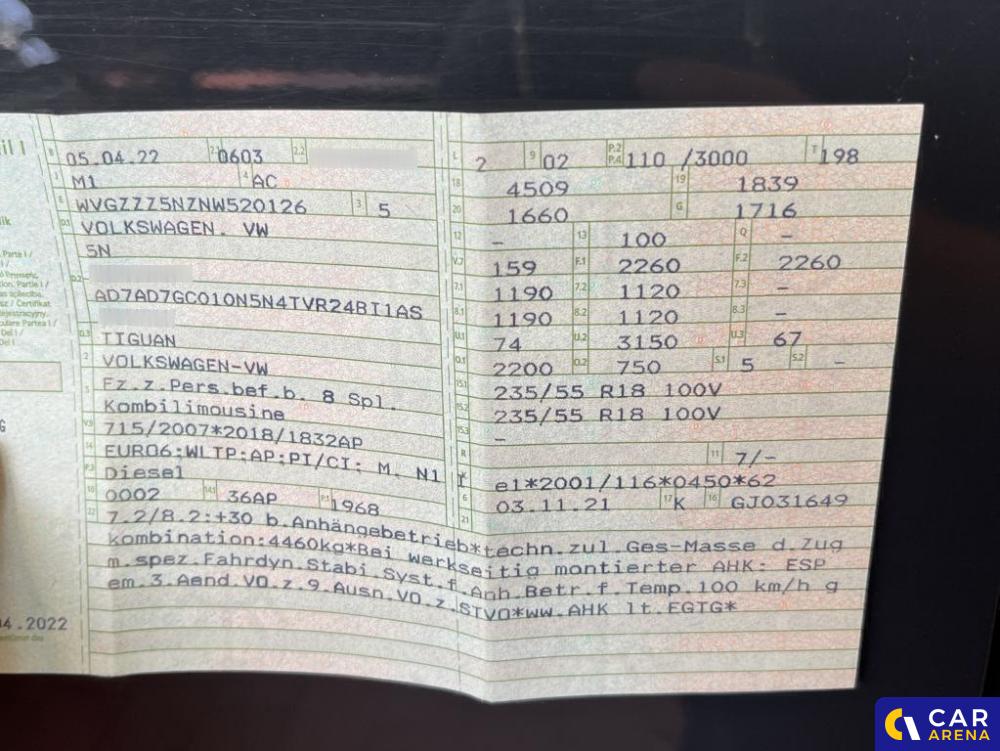 05.04.22 2.1 0603 2.2 L 2 9 02 P.2 P.4 110 /3000 T 198
M1 4 AC 18 4509 19 1839
WVGZZZ5NZNW520126 3 5 20 1660 G 1716
VOLKSWAGEN. VW 12 – 13 100 Q –
5N V.7 159 F.1 2260 F.2 2260
7.1 1190 7.2 1120 7.3 –
D.2 AD7AD7GC010N5N4TVR24BI1AS 8.1 1190 8.2 1120 8.3 –
U.1 74 U.2 3150 U.3 67
D.3 TIGUAN O.1 2200 O.2 750 S.1 5 S.2 –
2 VOLKSWAGEN-VW 15.1 235/55 R18 100V
5 Fz.z.Pers.bef.b. 8 Spl. 15.2 235/55 R18 100V
Kombilimousine 15.3 –
V.9 715/2007*2018/1832AP R 11 7/–
14 EURO6;WLTP;AP;PI/CI; M, N1 I e1*2001/116*0450*62
P.3 Diesel 6 03.11.21 17 K 16 GJ031649
10 0002 14.1 36AP P.1 1968 21
22 7.2/8.2:+30 b.Anhängebetrieb*techn.zul.Ges-Masse d.Zug
kombination:4460kg*Bei werkseitig montierter AHK: ESP
m.spez.Fahrdyn.Stabi.Syst.f.Anh.Betr.f.Temp.100 km/h g
em.3.Aend.VO.z.9.Ausn.VO.z.STVO*ww.AHK lt.EGTG*
04.2022
CAR
ARENA